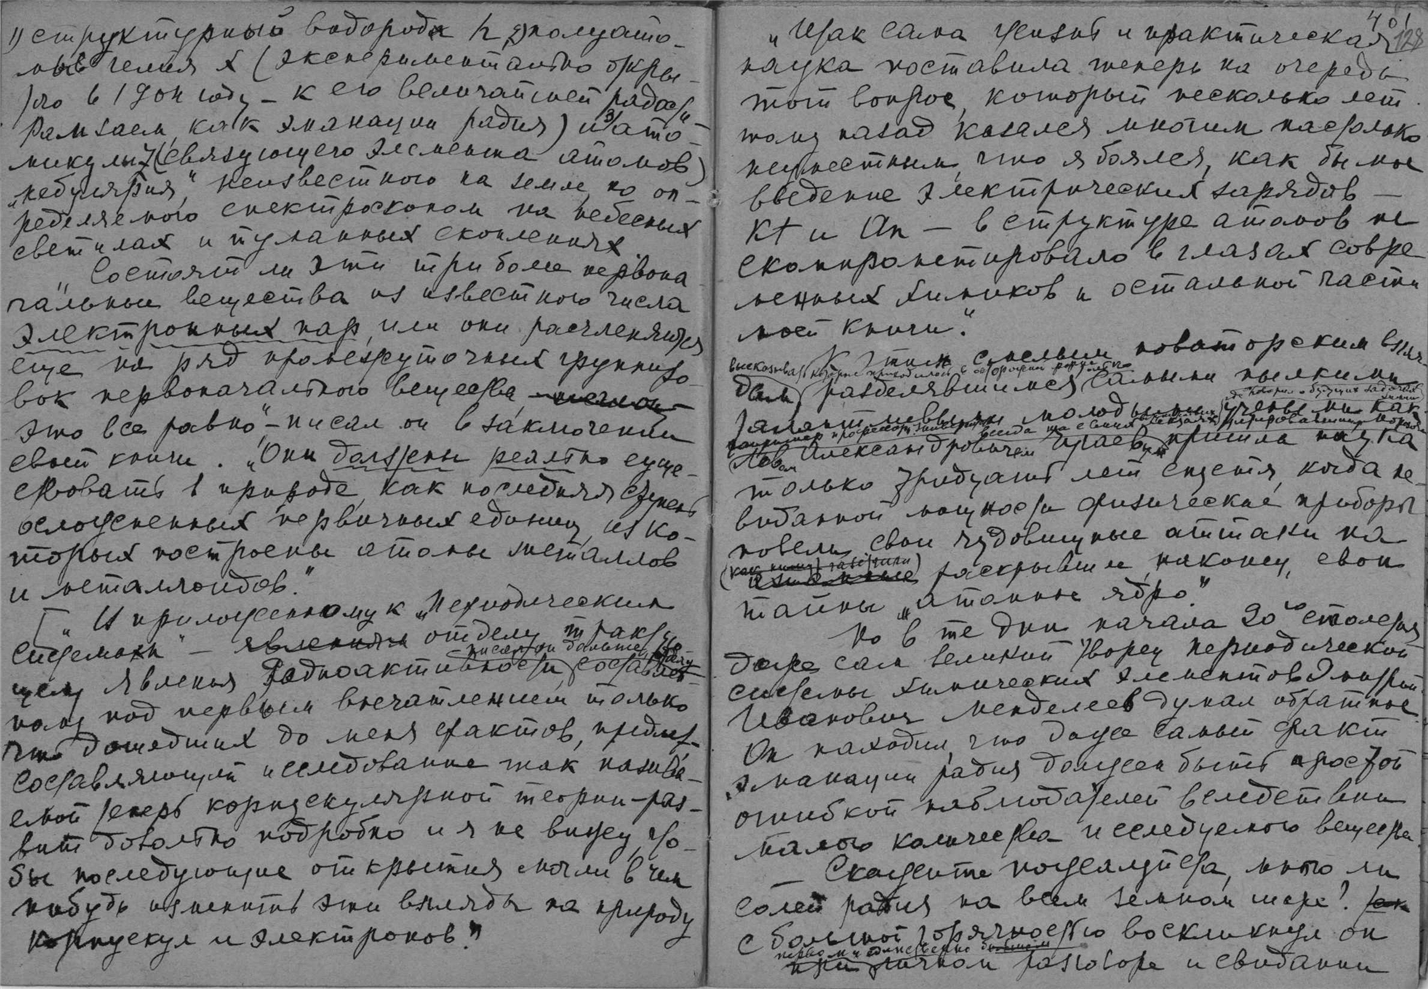 1) структурный водород h 2) полуато-
мы гелия х (экспериментально откры-
того в 19 году – к его величайшей радости
Рамзаем, как эманации радия) и 3) ато-
микулы Z (связующего элемента атомов)
„небулярия," неизвестного на земле, но оп-
ределяемого спектроскопом на небесных
светилах и туманных скоплениях.
Состоят ли эти три более первона-
чальныя вещества из известного числа
электронных пар, или они расчленяются
еще на ряд промежуточных группиро-
вок первоначального вещества,
это все равно", – писал он в заключении
своей книги. „Они должны реально суще-
ствовать в природе, как последняя ступень
осложненных первичных единиц, из ко-
торых построены атомы металлов
и металлоидов."
[ „И приложенному к „Периодическим
системам" – отделу, тракту-
ющему явления радиоактивности,
писал он дальше,
ному под первым впечатлением только
что дошедших до меня фактов, предст-
составляющий исследование так называ-
емой теперь корпускулярной теории – раз-
вит довольно подробно и я не вижу, что-
бы последующие открытия могли в чем
нибудь изменить эти взгляды на природу
корпускул и электронов."
401
128
„Итак сама жизнь и практическая
наука поставила теперь на очередь
тот вопрос, который несколько лет
тому назад казался многим настолько
неуместным, что я боялся, как бы мое
введение электрических зарядов –
Kt и An – в структуре атомов не
скомпрометировало в глазах совре-
менных химиков и остальной части
моей книги".
К этим смелым новаторским взгля-
дам, разделявшимся самыми пылкими
талантливыми молодыми учеными как
Александровичем пришла наука
только тридцать лет спустя, когда не-
виданной мощности физические приборы
повели свои чудовищные аттаки на
раскрывшие наконец, свои
тайны „атомные ядра".
Но в те дни начала 20го столетия
даже сам великий творец периодической
системы химических элементов Дмитрий
Иванович Менделеев думал обратное.
Он находил, что даже самый факт
эманации радия должен быть простой
ошибкой наблюдателей вследствии
малого количества исследуемого вещества.
– Скажите пожалуйста, много ли
солей радия на всем земном шаре?
с большой горячностью воскликнул он
при личном разговоре и свидании